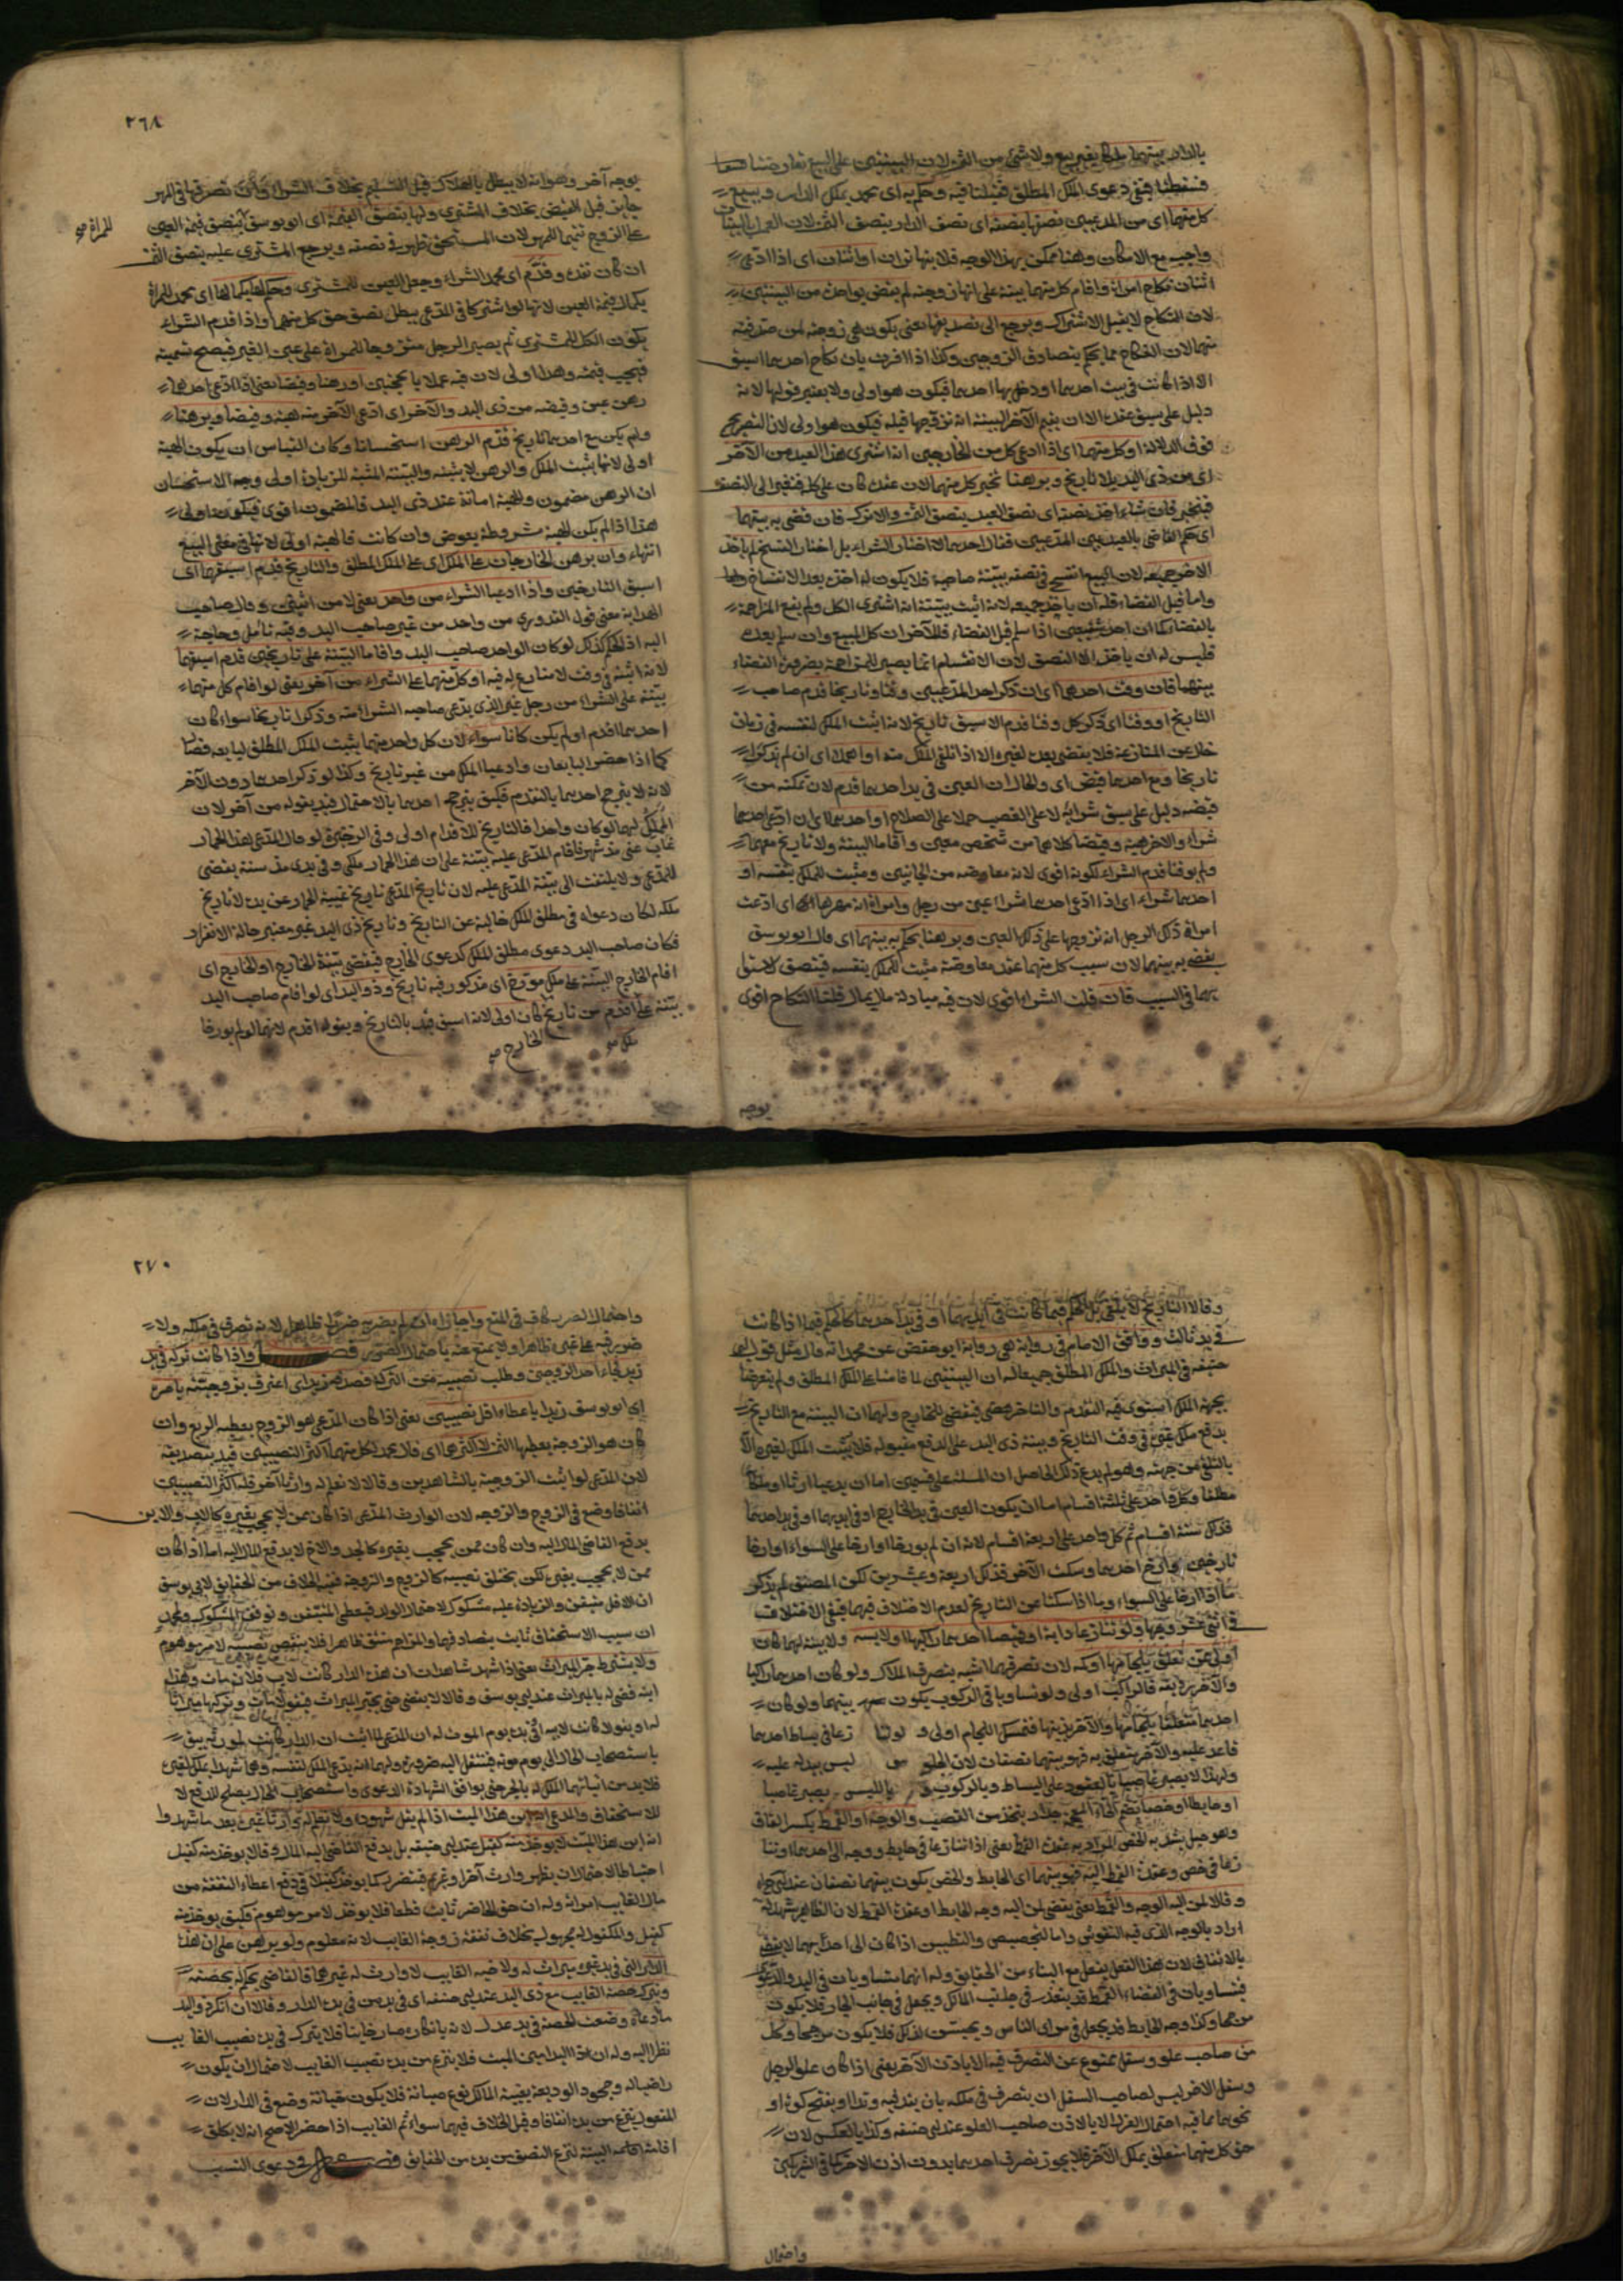 بالدار بينهما
فسقطتا فبقي دعوى الملك المطلق فقبلنا فيه وحكم به اي محمد بملك الدار وببيع
كل منهما اي من المدعيين نصفها بنصفه اي نصف الدار بنصف الثمن لان العمل بالبينات
واجب مع الامكان وههنا ممكن بهذا الوجه فلا بينهما اثنان اي اذا ادعى
اثنان نكاح امراة واقام كل منهما بينة على انها زوجته لم يقض بواحدة من البينتين
لان النكاح لا يقبل الاشتراك ويرجع الى تصديقها يعني يكون هي زوجة لمن صدقته
منهما لان النكاح مما يحكم بتصادق الزوجين وكذا اذا اقرت بان نكاح احدهما اسبق
الا اذا كانت في بيت احدهما او دخل بها احدهما فيكون هو اولى ولا يعتبر قولها لانه
دليل على سبق عقده الا ان يقيم الآخر البينة انه تزوجها قبله فيكون هو اولى لان الصريح
فوق الدلالة او كل منهما اي اذا ادعى كل من الخارجين انه اشترى هذا العبد من الآخر
اي من ذي اليد بلا تاريخ وبرهنا تخير كل منهما لان عقده كان على كل فتغير الى النصف
فيتخير فان شاء اخذ نصفه اي نصف العبد بنصف الثمن والا ترك فان قضى به بينهما
اي حكم القاضي بالعبد بين المدعيين فقال احدهما لا اختار الشراء بل اختار الفسخ لم ياخذ
الآخر جميعه لان البيع انفسخ في نصفه ببينة صاحبه فلا يكون له اخذه بعد الانفساخ
واما قبل القضاء فله ان ياخذ جميعه لانه اثبت ببينته انه اشترى الكل ولم يقع المزاحمة
بالقضاء كما ان احد شفيعين اذا سلم قبل القضاء فللآخر ان كل المبيع وان سلم بعده
فليس له ان ياخذ الا النصف لان الانقسام انما يصير للمزاحمة بضرورة القضاء
بينهما فان وقت احدهما اي ان ذكر احد المدعيين وقتا وتاريخا قدم صاحب
التاريخ او وقتا اي ذكر كل وقتا قدم الاسبق تاريخ لانه اثبت الملك لنفسه في زمان
خال عن المنازعة فلا يقضى بعده لغيره الا اذا تلقى الملك منه او اهملا اي ان لم يذكرا
تاريخا ومع احدهما قبض اي والحال ان العين في يد احدهما قدم لان تمكنه من
قبضه دليل على سبق شرائه لا على الغصب حملا على الصلاح او احدهما اي ان ادعى احدهما
شراء والآخر هبة وقبضا كلاهما من شخص معين واقاما البينة ولا تاريخ معهما
ولم يوقتا قدم الشراء لكونه اقوى لانه معاوضة من الجانبين ومثبت للملك بنفسه او
احدهما شراء اي اذا ادعى احدهما شراء عين من رجل وامراة انه مهرها اي ادعت
امراة ذلك الرجل انه تزوجها على ذلك العين وبرهنا يحكم به بينهما اي قال ابو يوسف
يقضى به بينهما لان سبب كل منهما عقد معاوضة مثبت للملك بنفسه فينصف لاستوا
ئهما في السبب فان قلت الشراء اقوى لان فيه مبادلة مال بمال قلنا النكاح اقوى
بوجه
٢٦٨
بوجه آخر وهو انه لا يبطل بالهلاك قبل التسليم بخلاف الشراء وان تصرفها في المهر
جايز قبل القبض بخلاف المشتري ولها بنصف القيمة اي ابو يوسف بنصف قيمة العين
للمراة صح
على الزوج تتميما للمهر لان المستحق ظهر في نصفه ويرجع المشتري عليه بنصف الثمن
ان كان نقده وقدم اي محمد الشراء وجعل العين للمشتري وحكم لها اي محمد للمراة
بكمال قيمة العين لانهما لو اشتركا في المدعى يبطل نصف حق كل منهما واذا قدم الشراء
يكون الكل للمشتري ثم يصير الرجل متزوجا للمراة على عين الغير فيصح تسميته
فيجب قيمته وهذا اولى لان فيه عملا بالحجتين او رهنا وقبضا يعني اذا ادعى احدهما
رهن عين وقبضه من ذي اليد والآخر اي ادعى الآخر منه هبة وقبضا وبرهنا
ولم يكن مع احدهما تاريخ قدم الرهن استحسانا وكان القياس ان يكون الهبة
اولى لانها يثبت الملك والرهن لا يثبته والبينة المثبتة للزيادة اولى وجه الاستحسان
ان الرهن مضمون والهبة امانة عند ذي اليد فالمضمون اقوى فيكون اولى
هذا اذا لم يكن الهبة مشروطة بعوض وان كانت فالهبة اولى لانها في معنى البيع
انتهاء وان برهن الخارجان على الملك اي على الملك المطلق والتاريخ قدم اسبقهما اي
اسبق التاريخين واذا ادعيا الشراء من واحد يعني لا من اثنين وقال صاحب
الهداية معنى قول القدوري من واحد من غير صاحب اليد وفيه تامل وحاجة
اليه اذ الحكم كذلك لو كان الواحد صاحب اليد واقاما البينة على تاريخين قدم اسبقهما
لانه اثبته في وقت لا منازع له فيه او كل منهما على الشراء من آخر يعني لو اقام كل منهما
بينة على الشراء من رجل غير الذي يدعي صاحبه الشراء منه وذكرا تاريخا سواء كان
احدهما اقدم او لم يكن كانا سواء لان كل واحد منهما يثبت الملك المطلق لبايعه فصار
كما اذا حضر البايعان وادعيا الملك من غير تاريخ وكذا لو ذكر احدهما دون الآخر
لانه لا يترجح احدهما بالتقدم فكيف يترجح احدهما بالاحتمال قيد بقوله من آخر لان
المملك لهما لو كان واحدا فالتاريخ للاقدام اولى وفي الذخيرة لو قال المدعي هذا الحمار
غاب عني مذ شهر فاقام المدعى عليه بينة على ان هذا الحمار ملكي وفي يدي مذ سنة يقضى
للمدعي ولا يلتفت الى بينة المدعى عليه لان تاريخ المدعي تاريخ غيبة الحمار عن يده لا تاريخ
ملكه لكان دعواه في مطلق الملك خالية عن التاريخ وتاريخ ذي اليد غير معتبر حالة الانفراد
فكان صاحب اليد دعوى مطلق الملك كدعوى الخارج فيقضى ببينة الخارج او الخارج اي
اقام الخارج البينة على ملك مورخ اي مذكور فيه تاريخ وذو اليد اي لو اقام صاحب اليد
بينة على اقدم من تاريخ كان اولى لانه اسبق قيد بالتاريخ وبقوله اقدم لانهما لو لم يورخا
ملك صح الخارج صح
وقالا التاريخ
في يد ثالث ووافق الامام في رواية هي رواية ابو حفص عن محمد انه قال مثل قول ابي
حنيفة في الميراث والملك المطلق جميعا له ان البينتين لما قامتا على الملك المطلق ولم يتعرضا
بجهة الملك استوى فيه التقدم والتاخر فيقضى للخارج ولهما ان البينة مع التاريخ
يدفع ملك غيره في وقت التاريخ وبينة ذي اليد على الدفع مقبولة فلا يثبت الملك لغيره الا
بالتلقي من جهته وهو لم يدع ذلك الحاصل ان المسئلة على قسمين اما ان يدعيا ارثا او ملكا
مطلقا وكل واحد على ثلثة اقسام اما ان يكون العين في يد الخارج او في ايديهما او في يد احدهما
فذلك ستة اقسام ثم كل واحد على اربعة اقسام لانه ان لم يورخا او ارخا على السواء او ارخا
تاريخين او ارخ احدهما وسكت الآخر فذلك اربعة وعشرين لكن المصنف لم يذكر
ما اذا ارخا على السواء وما اذا سكتا عن التاريخ لعدم الاختلاف فيهما فبقي الاختلاف
في اثني عشر وجها ولو تنازعا دابة او قميصا احدهما راكبها او لابسه ولا بينة لهما كان
اولى من تعلق بلجامها او كمه لان تصرفهما اشبه بتصرف الملاك ولو كان احدهما راكبا
والآخر رديفه فالراكب اولى ولو تساويا في الركوب يكون بينهما ولو كان
احدهما متعلقا بلجامها والآخر بذنبها فممسك اللجام اولى ولو تنازعا في بساط احدهما
قاعد عليه والآخر متعلق به فهو بينهما نصفان لان الجلوس ليس بيد له عليه
ولهذا لا يصير غاصبا بالقعود على البساط وبالركوب واللبس يصير غاصبا
او حايطا او خصا بضم الخاء المعجمة جدار يتخذ من القصب والوجه او القمط بكسر القاف
وهو حبل يشد به الخص المراد به عقدة القمط يعني اذا تنازعا في حايط ووجه الى احدهما او تنا
زعا في خص وعقدة القمط اليه فهو بينهما اي الحايط والخص يكون بينهما نصفان عند ابي حنيفة
وقالا لمن اليه الوجه والقمط يعني يقضى لمن اليه وجه الحايط او عقدة القمط لان الظاهر يشهد له
اراد بالوجه الذي فيه النقوش واما التجصيص والتطيين اذا كان الى احدهما لا يقضى
بالاتفاق لان هذا الفعل يفعل مع البناء من الحقايق وله انهما متساويان في اليد والدعوى
فيتساويان في القضاء والقمط قد يتعذر في جانب المالك ويجعل في جانب الجار فلا يكون
مرجحا وكذا وجه الحايط قد يجعل في مراى الناس ويحسن لذلك فلا يكون مرجحا وكل
من صاحب علو وسفل ممنوع عن التصرف فيه الا باذن الآخر يعني اذا كان علو الرجل
وسفل الآخر ليس لصاحب السفل ان يتصرف في ملكه بان يتد فيه وتدا او يفتح كوة او
نحوهما مما فيه احتمال الضرر الا بالاذن صاحب العلو عند ابي حنيفة وكذا بالعكس لان
حق كل منهما متعلق بملك الآخر فلا يجوز تصرف احدهما بدون اذن الآخر كما في الشريكين
واحتمال
٢٧٠
واحتمال الضرر كاف في المنع واجازاه ان لم يضر به ضررا ظاهرا لانه تصرف في ملكه ولا
ضرر فيه على غيره ظاهرا ولا يمنع عنه باحتمال الضرر فصل واذا كانت تركة في يد
زيد فجاء احد الزوجين وطلب نصيبه من التركة فصدقه زيد اي اعترف بزوجيته يامره
اي ابو يوسف زيدا باعطاء اقل نصيبين يعني اذا كان المدعي هو الزوج يعطيه الربع وان
كان هو الزوجة يعطيها الثمن لا اكثرهما اي قال محمد لكل منهما اكثر النصيبين قيد بتصديقه
لان المدعي لو اثبت الزوجية بالشاهدين وقالا لا نعلم له وارثا آخر فله اكثر النصيبين
اتفاقا وضع في الزوج والزوجة لان الوارث المدعي اذا كان ممن لا يحجب بغيره كالاب والابن
يدفع القاضي المال اليه وان كان ممن يحجب بغيره كالجد والاخ لا يدفع المال اليه اما اذا كان
ممن لا يحجب بغيره لكن يختلف نصيبه كالزوج والزوجة ففيه الخلاف من الحقايق لابي يوسف
ان الاقل متيقن والزيادة عليه مشكوك لاحتمال الولد فيعطى المتيقن ويوقف المشكوك ولمحمد
ان سبب الاستحقاق ثابت بتصادقهما والمزاحم منتف ظاهرا فلا ينتقص نصيبه لامر موهوم
ولا يشترط جر الميراث يعني اذا شهد شاهدان ان هذه الدار كانت لاب فلان مات وهذا
ابنه قضى له بالميراث عند ابي يوسف وقالا لا يقضى حتى يجر الميراث فيقولا مات وتركها ميراثا
له او يقولا كانت لابيه او في يده يوم الموت له ان المدعي لما اثبت ان الدار كانت لمورثه يبقى
باستصحاب الحال الى يوم موته فتنتقل اليه ضرورة ولهما انه يدعي الملك لنفسه وهما شهدا بملك لغيره
فلا بد من اثباتهما الملك له بالجر حتى يوافق الشهادة الدعوى واستصحاب الحال يصلح للدفع لا
للاستحقاق والمدعي ابن هذا الميت اذا لم يقل شهوده ولا نعلم له وارثا غيره بعد ما شهدوا
انه ابن هذا الميت لا يوخذ منه كفيل عند ابي حنيفة بل يدفع القاضي اليه المال وقالا يوخذ منه كفيل
احتياطا لاحتمال ان يظهر وارث آخر او غريم فيتضرر كما يوخذ كفيلا في دفع اعطاء النفقة من
مال الغايب امراته وله ان حق الحاضر ثابت قطعا فلا يوخر لامر موهوم فكيف يوخذ منه
كفيل والمكفول له مجهول بخلاف نفقة زوجة الغايب لانه معلوم ولو برهن على ان هذه
الدار التي في يد غيره ميراث له ولاخيه الغايب لا وارث له غيرهما فالقاضي يحكم له بحصته
ويترك حصة الغايب مع ذي اليد عند ابي حنيفة اي في يد من في يده الدار وقالا ان انكر ذو اليد
ما ادعاه وضعت الحصة في يد عدل لانه بانكاره صار خاينا فلا يترك في يده نصيب الغايب
نظرا اليه وله ان ذا اليد امين الميت فلا ينزع من يده نصيب الغايب لاحتمال ان يكون
راضيا له وجحود الوديعة بغيبة المالك نوع صيانة فلا يكون خيانة وضع في الدار لان
المنقول ينزع من يده اتفاقا وقيل الخلاف فيهما سواء ثم الغايب اذا حضر الاصح انه لا يكلف
اقامة البينة لنزع النصف من يده من الحقايق فصل في دعوى النسب